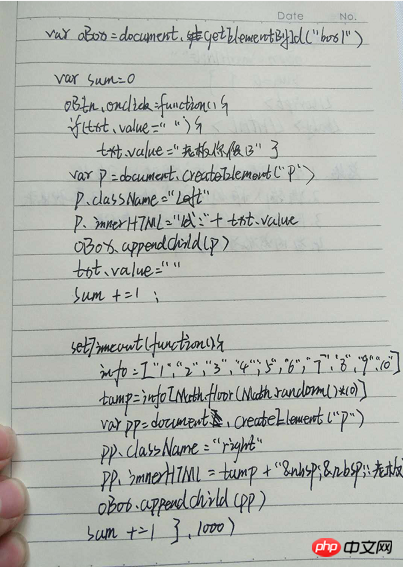 Date No.
var oBox=document.getElementById("box1")
var sum=0
oBtn.onclick=function(){
if(txt.value=" "){
txt.value="老板你很13" }
var p=document.createElement("p")
p.className="left"
p.innerHTML= + txt.value
oBox.appendChild(p)
txt.value=" "
sum +=1 ;
setTimeout(function(){
info=["1","2","3","4","5","6","7","8","9","10"]
tamp=info[Math.floor(Math.random()*10)]
var pp=document.createElement("p")
pp.className="right"
pp.innerHTML = tamp + "&nbsp;&nbsp;:老板
oBox.appendChild(pp)
sum +=1 },1000)
php 中文网